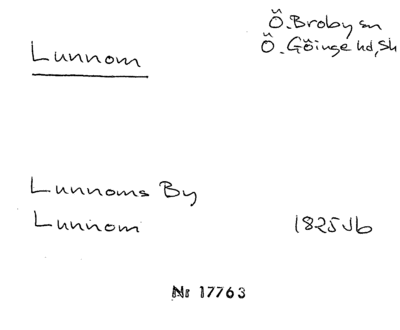 Ö. Broby sn
Lunnom
Ö. Göinge hd, Sk
Lunnoms By
Lunnom 1825 Jb
Nr 17763